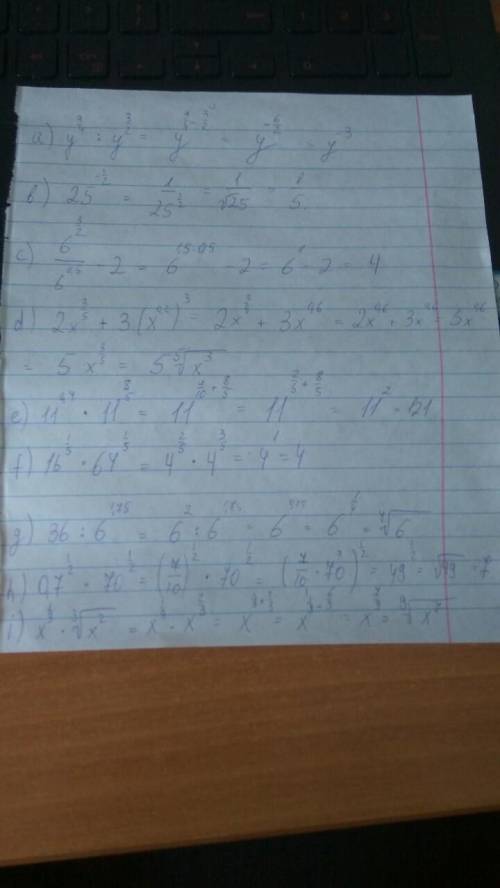 a) y^(9/4) : y^(3/2) = y^(9/4 - 3/2) = y^(-6/2) = y^(-3)
b) 25^(-1/2) = 1/25^(1/2) = 1/√25 = 1/5
c) 6^(3/2)/6^(0,5) - 2 = 6^(1,5-0,5) - 2 = 6^1 - 2 = 4
d) 2x^(3/5) + 3(x^(0,2))^3 = 2x^(3/5) + 3x^(0,6) = 2x^(0,6) + 3x^(0,6) = 5x^(0,6)
= 5x^(3/5) = 5 ⁵√x^3
e) 11^(0,4) · 11^(8/5) = 11^(4/10 + 8/5) = 11^(2/5 + 8/5) = 11^2 = 121
f) 16^(1/5) · 64^(1/5) = 4^(2/5) · 4^(3/5) = 4^1 = 4
g) 36 : 6^(1,75) = 6^2 : 6^(1,75) = 6 = 6^(1/4) = ⁴√6
h) 0,7^(1/2) · 70^(1/2) = (7/10)^(1/2) · 70^(1/2) = (7/10 · 70)^(1/2) = 49^(1/2) = √49 = 7
i) x · ³√x^2 = x · x^(2/3) = x = x = x = √x^7